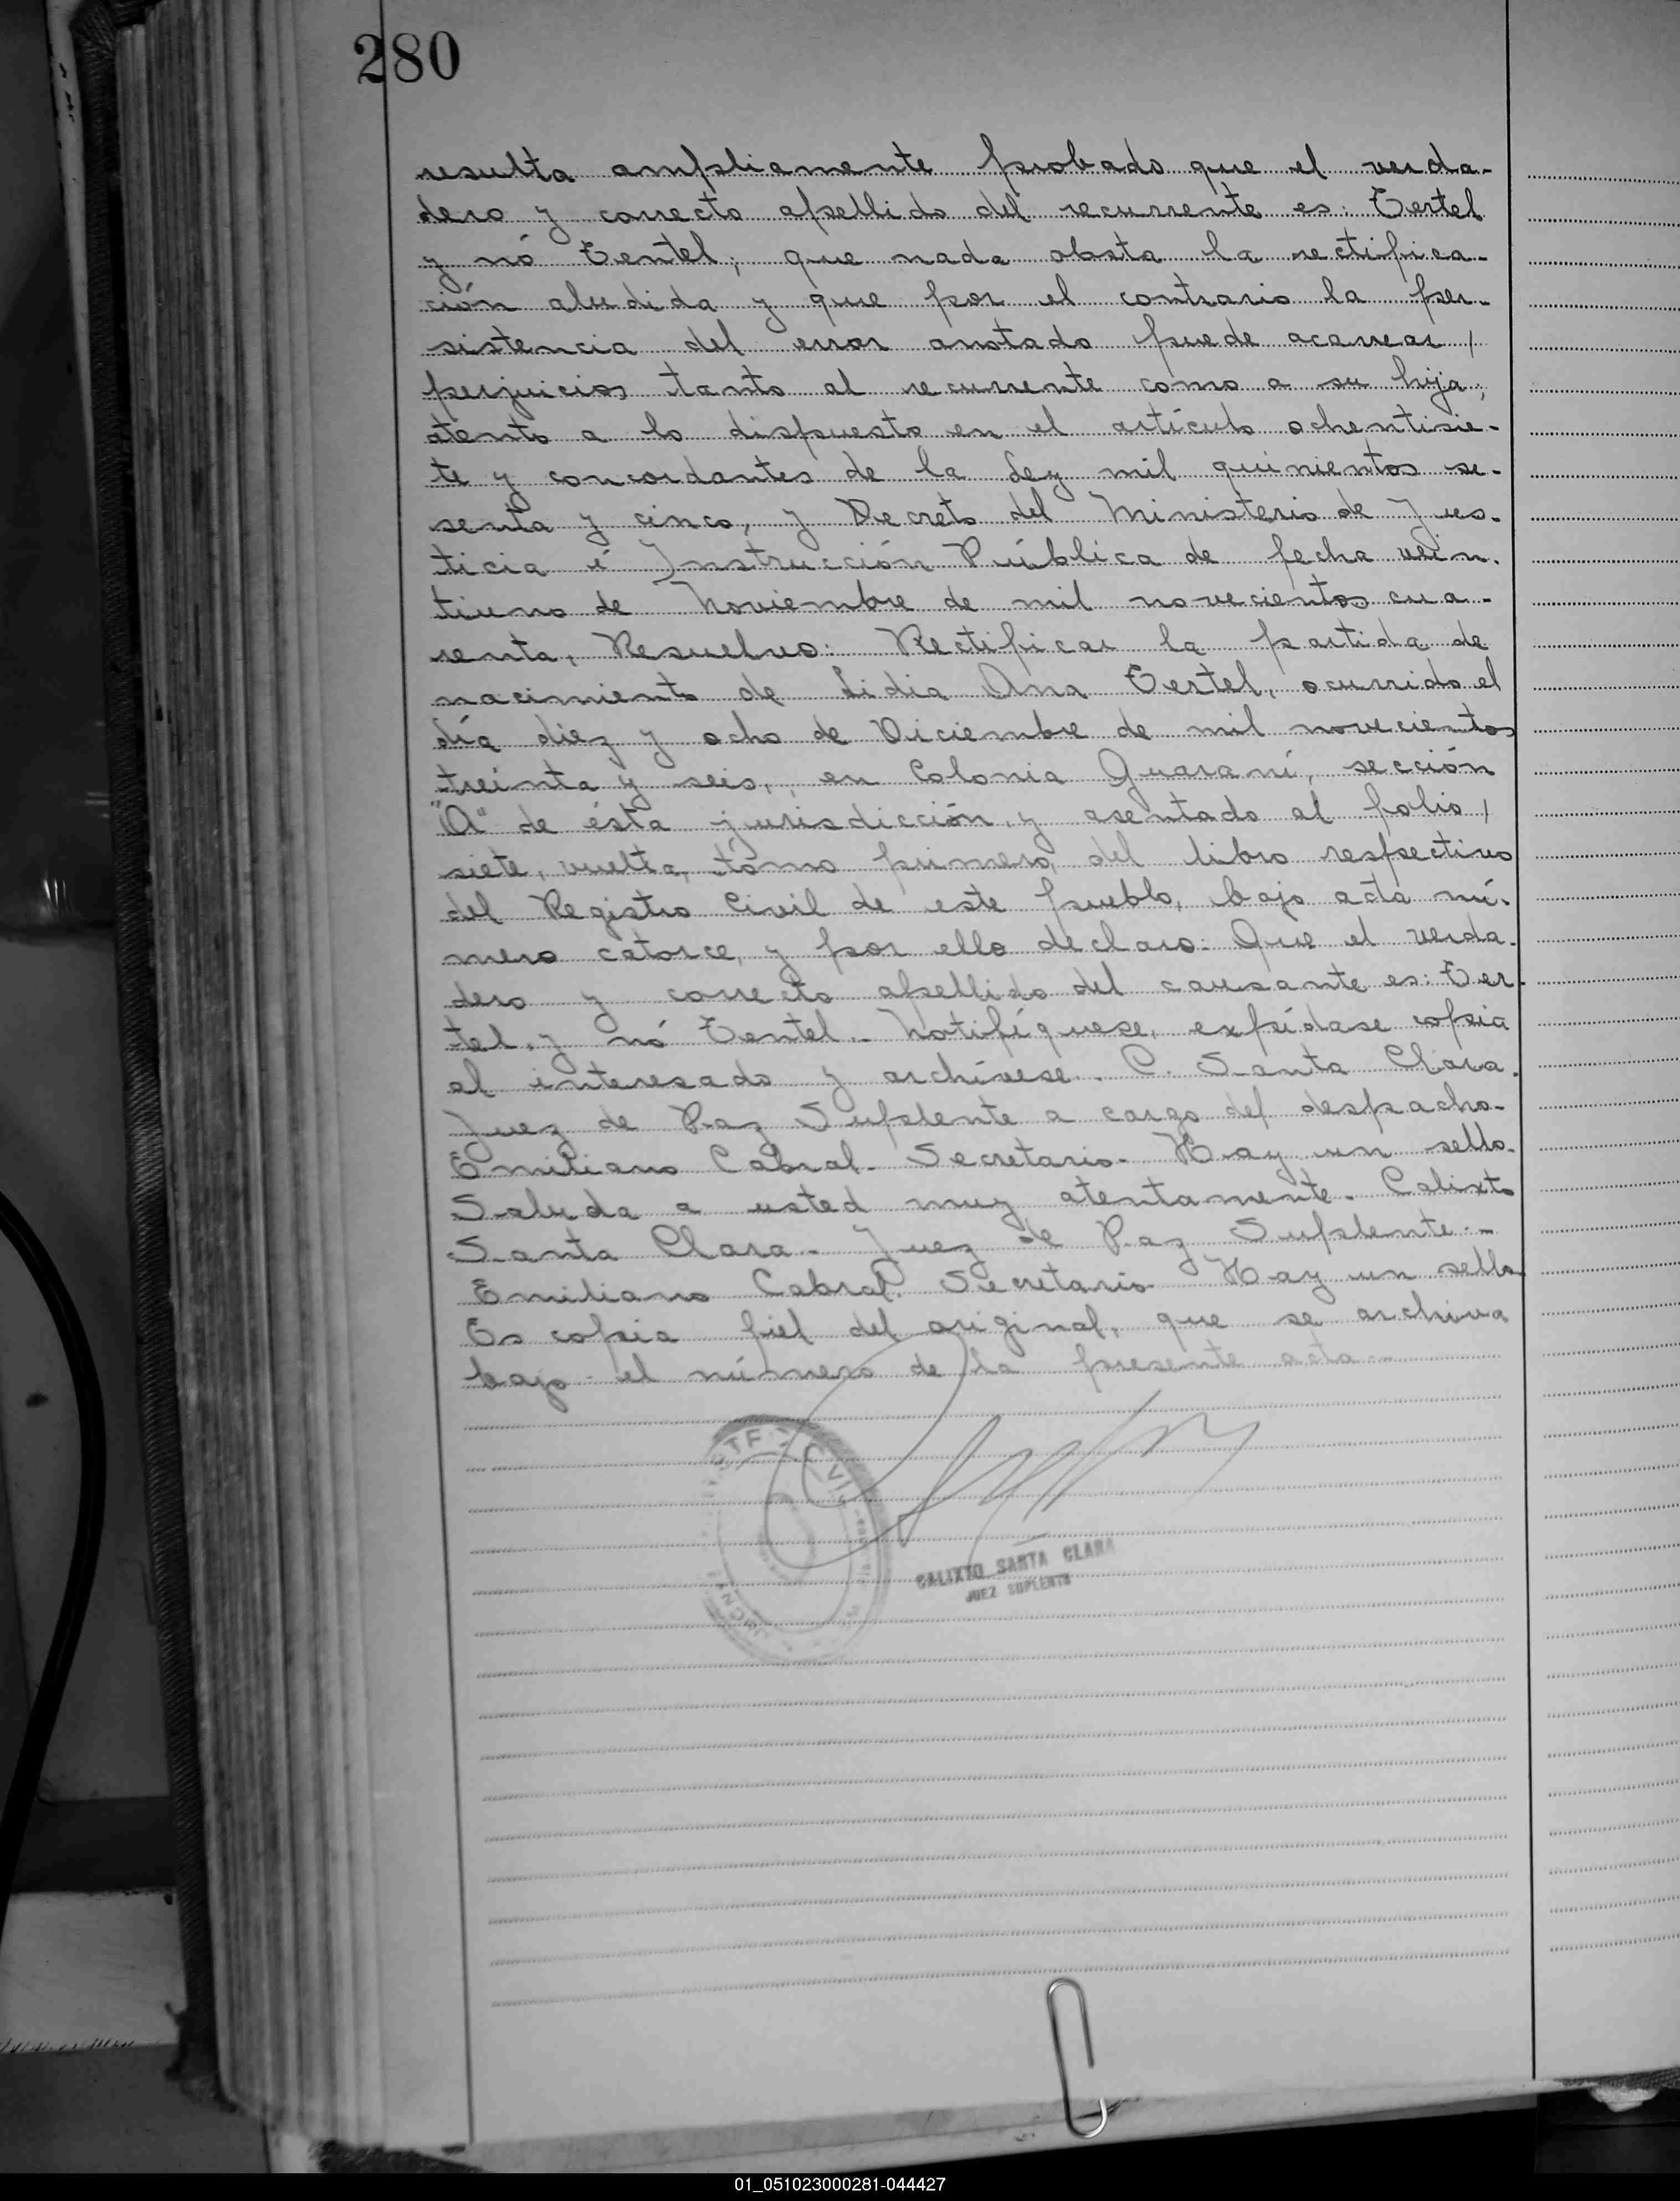 280
resulta ampliamente probado que el verda-
dero y correcto apellido del recurrente es: Oertel
y nó Oentel; que nada obsta la rectifica-
ción aludida y que por el contrario la per-
sistencia del error anotado puede acarrear /
perjuicios tanto al recurrente como a su hija;
atento a lo dispuesto en el artículo ochentisie-
te y concordantes de la Ley mil quinientos se-
senta y cinco, y Decreto del Ministerio de Jus-
ticia é Instrucción Pública de fecha vein-
tiuno de Noviembre de mil novecientos cua-
renta, Resuelvo: Rectificar la partida de
nacimiento de Lidia Ana Oertel, ocurrido el
día diez y ocho de Diciembre de mil novecientos
treinta y seis, en Colonia Guaraní, sección
"A" de ésta jurisdicción, y asentado al folio /
siete, vuelta, tomo primero, del libro respectivo
del Registro Civil de este pueblo, bajo acta nú-
mero catorce, y por ello declaro: Que el verda-
dero y correcto apellido del causante es: Oer-
tel, y nó Oentel.- Notifíquese, expídase copia
al interesado y archívese. C. Santa Clara.
Juez de Paz Suplente a cargo del despacho-
Emiliano Cabral- Secretario- Hay un sello.
Saluda a usted muy atentamente- Calixto
Santa Clara- Juez de Paz Suplente.-
Emiliano Cabral. Secretario Hay un sello
Es copia fiel del original, que se archiva
bajo el número de la presente acta.-
CALIXTO SANTA CLARA
JUEZ SUPLENTE
01_051023000281-044427